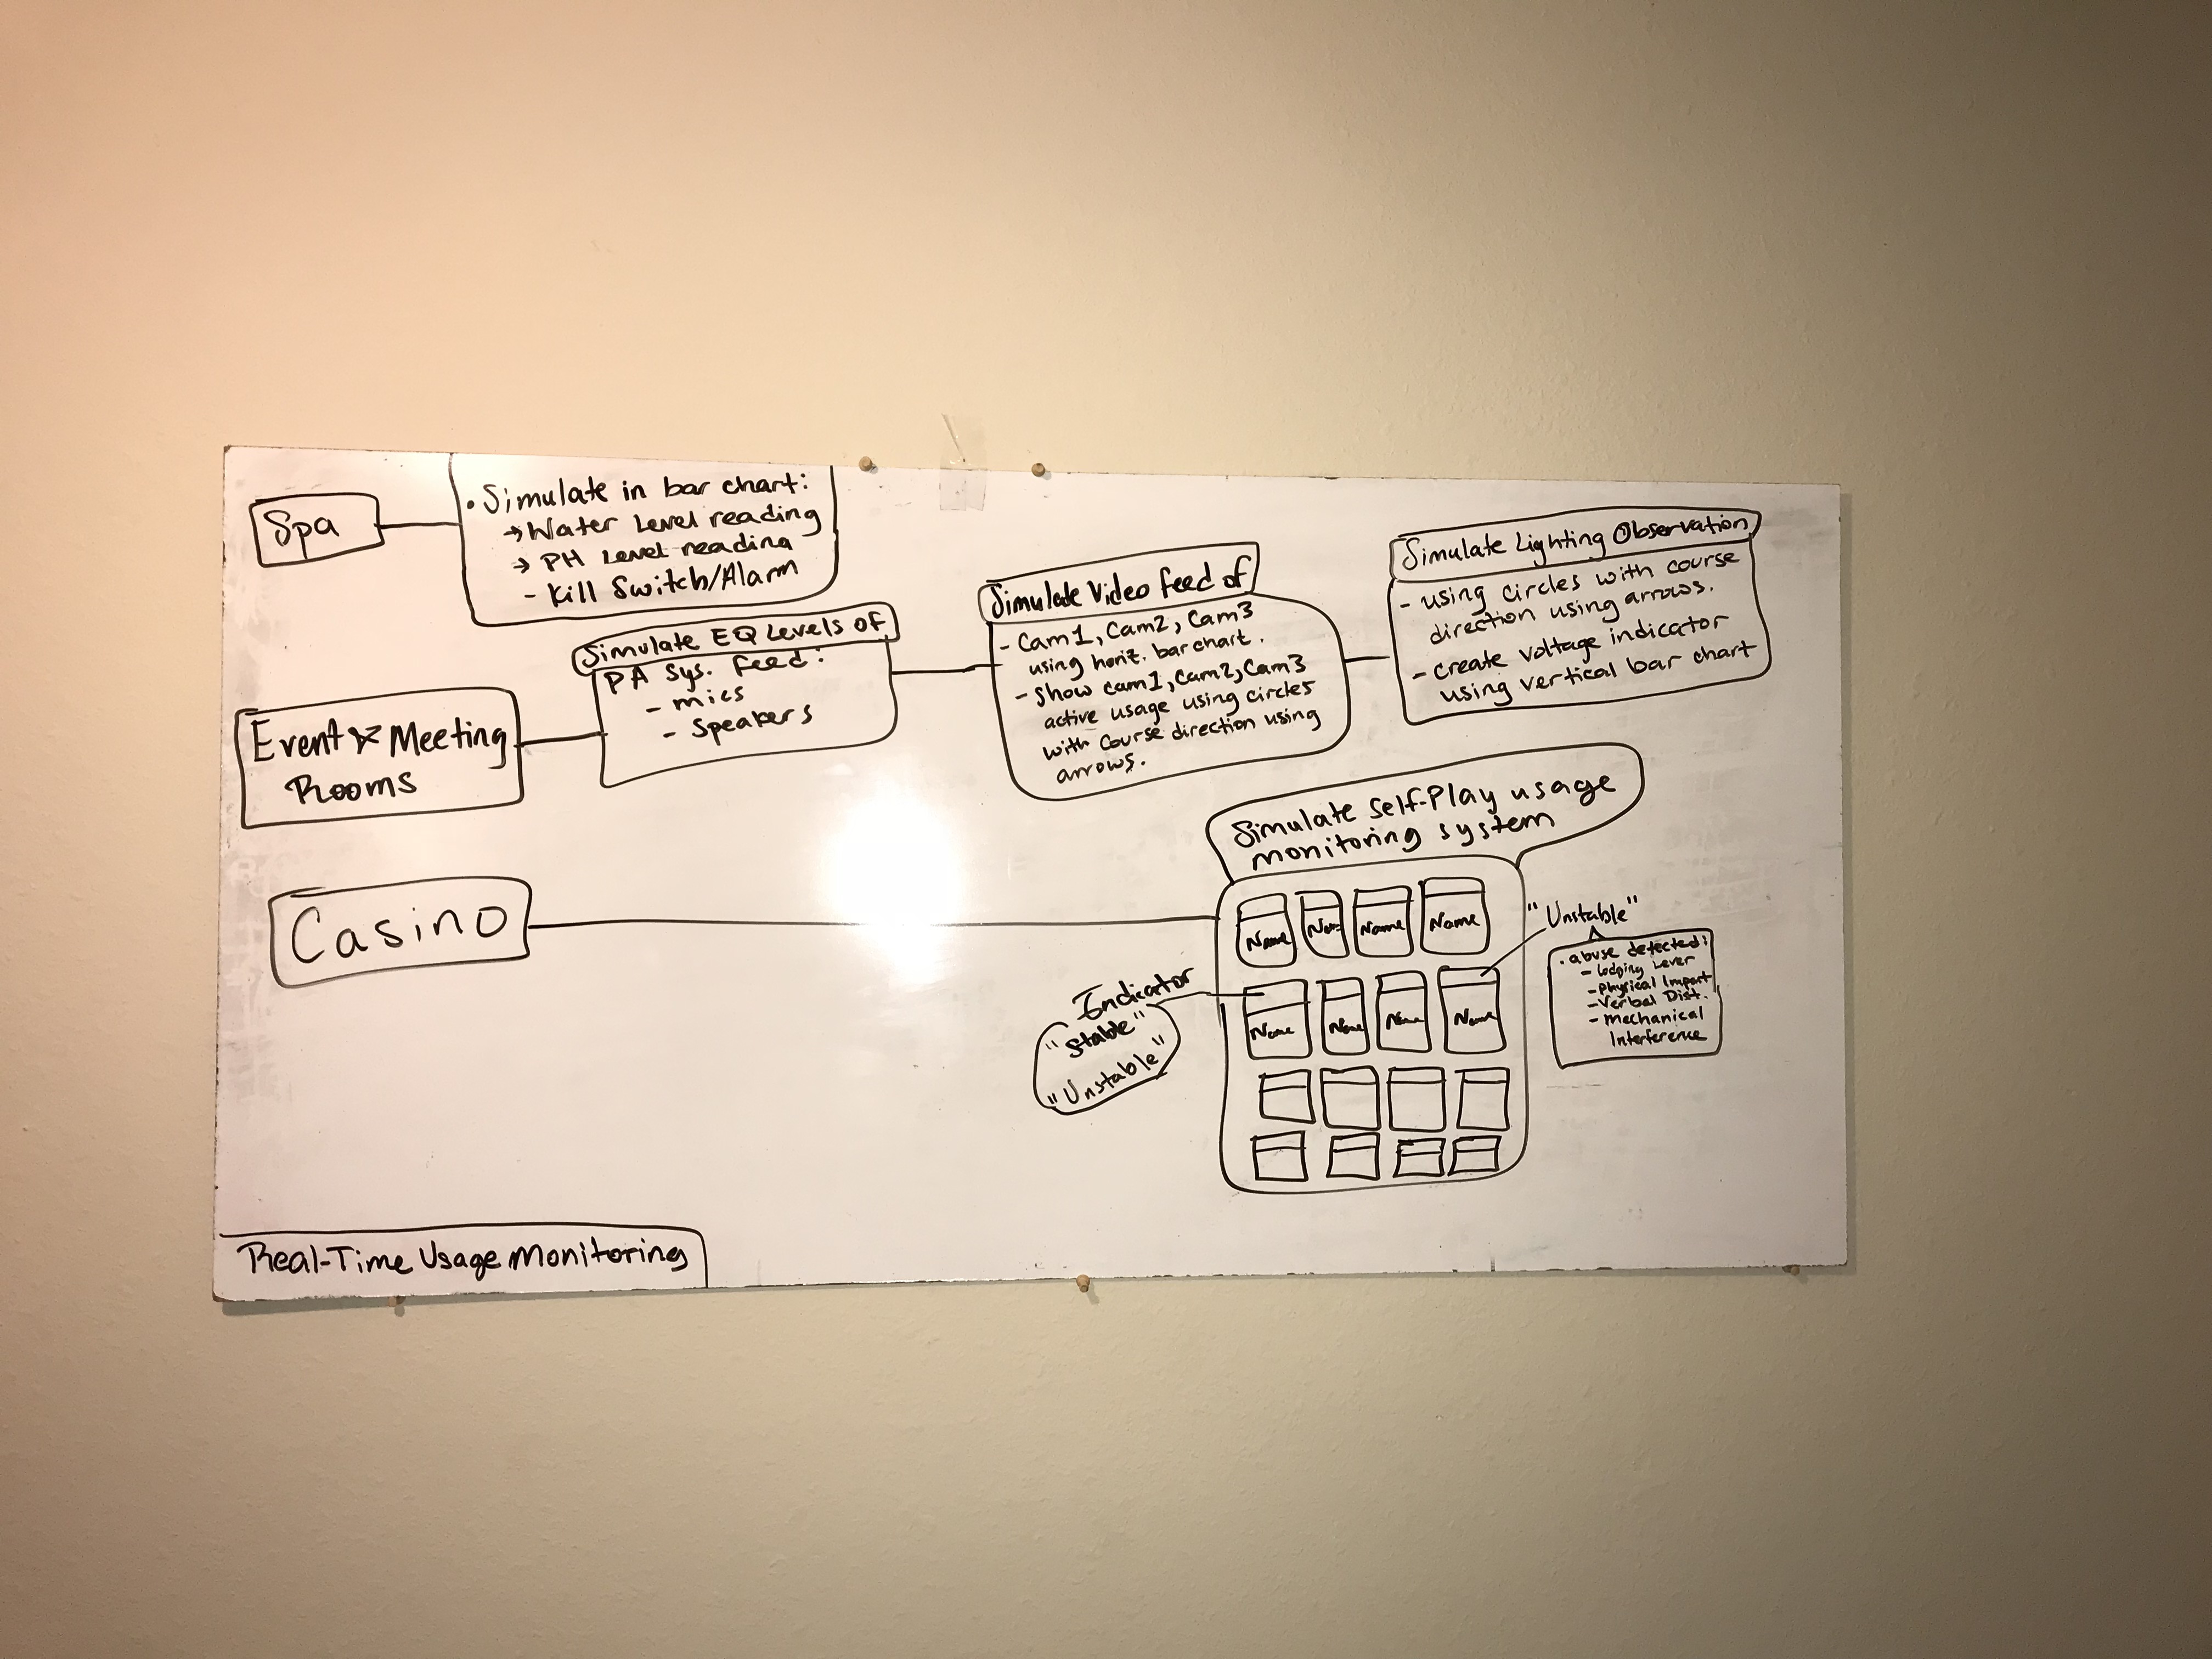 Spa
• Simulate in bar chart:
→ Water Level reading
→ PH Level reading
- Kill Switch/Alarm
Event & Meeting
Rooms
Simulate EQ Levels of
PA Sys. Feed:
- mics
- Speakers
Simulate Video Feed of
- Cam1, Cam2, Cam3
using horiz. bar chart.
- Show cam1, Cam2, Cam3
active usage using circles
with course direction using
arrows.
Simulate Lighting Observation
- using circles with course
direction using arrows.
- create voltage indicator
using vertical bar chart
Casino
Simulate Self-Play usage
monitoring system
Name Name Name Name
Name Name Name Name
Indicator
"Stable"
"Unstable"
"Unstable"
• abuse detected:
Lever
- Physical Impact
- Verbal Dist.
- Mechanical
Interference
Real-Time Usage Monitoring